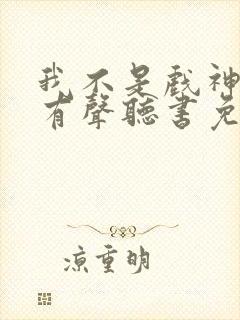 我不是戲神
有聲聽書免
涼重明